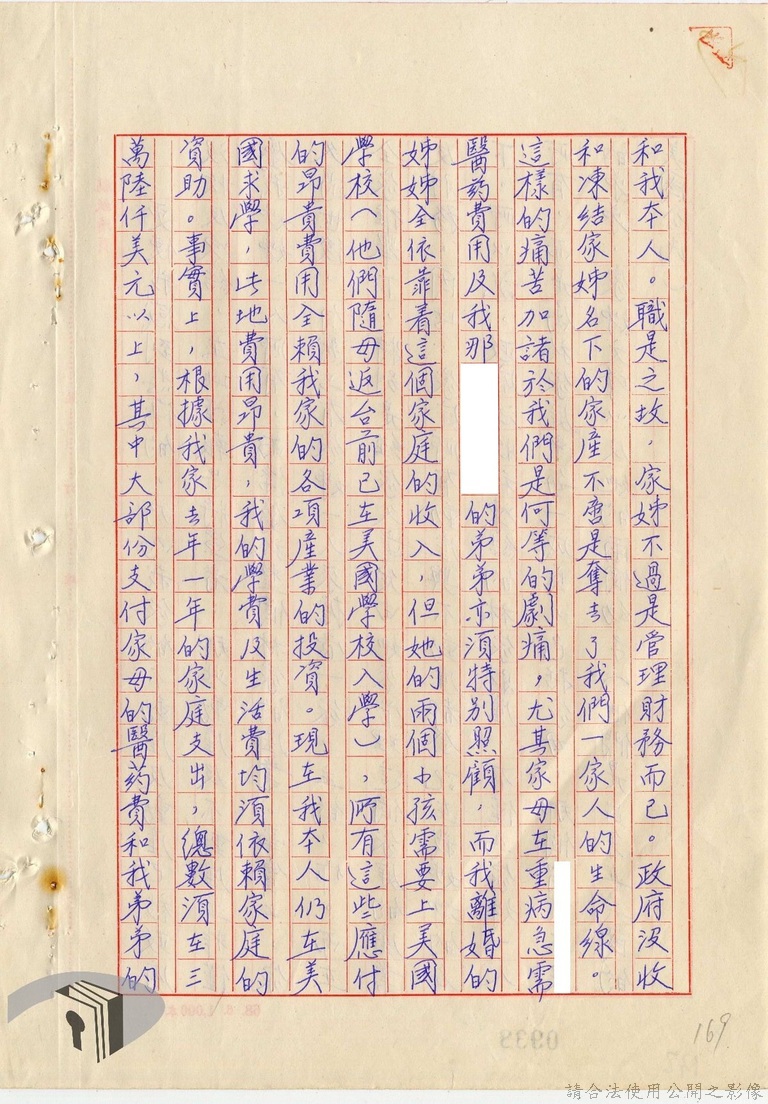 和我本人。職是之故，家姊不過是管理財務而已。政府沒收
和凍結家姊名下的家產不啻是奪去了我們一家人的生命線。
這樣的痛苦加諸於我們是何等的劇痛，尤其家母在重病急需
醫药費用及我那
的弟弟亦須特別照顧，而我離婚的
姊姊全依靠着這個家庭的收入，但她的兩個小孩需要上美國
學校（他們隨母返台前已在美國學校入學），所有這些應付
的昂貴費用全賴我家的各項產業的投資。現在我本人仍在美
國求學，此地費用昂貴，我的學費及生活費均須依賴家庭的
資助。事實上，根據我家去年一年的家庭支出，總數須在三
萬陸仟美元以上，其中大部份支付家母的醫药費和我弟弟的
169
請合法使用公開之影像